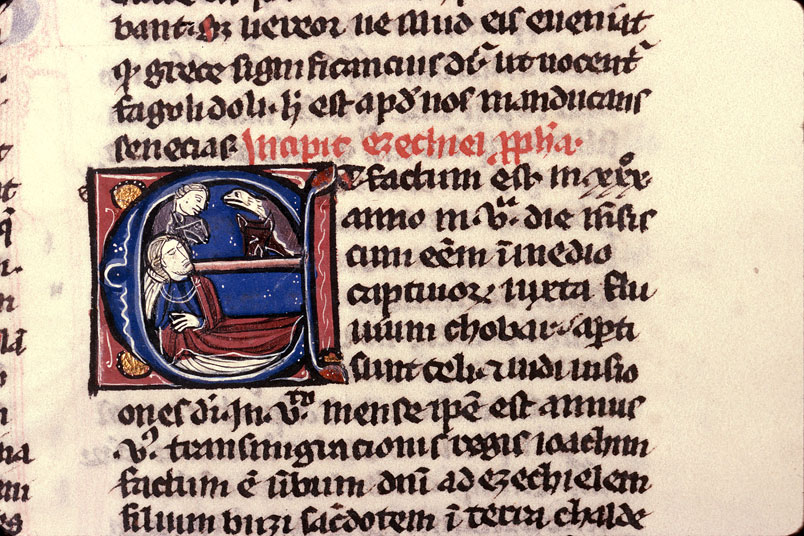 bant. ⁊ uereor ne illud eis eueniat
q̇ grece significancius dr̄ ut uocent᷑
fagolidoli. h̄ est apđ nos manducans
senecias. Incipit ezechiel ꝓph̄a.
Et factum est in xxxͦ.
anno in .vͣ. die m̄sis
cum eēm ī medio
captiuoꝝ iuxta flu
uium chobar. aꝑti
sunt celi. ⁊ uidi uisio
ones di. In .vͭͦ. mense ipē est annus
.vͦ. transmigracionis regis ioachim
factum ē ūbum dnī ad ezechielem
filium buzi sac̄dotem ī terra chalde